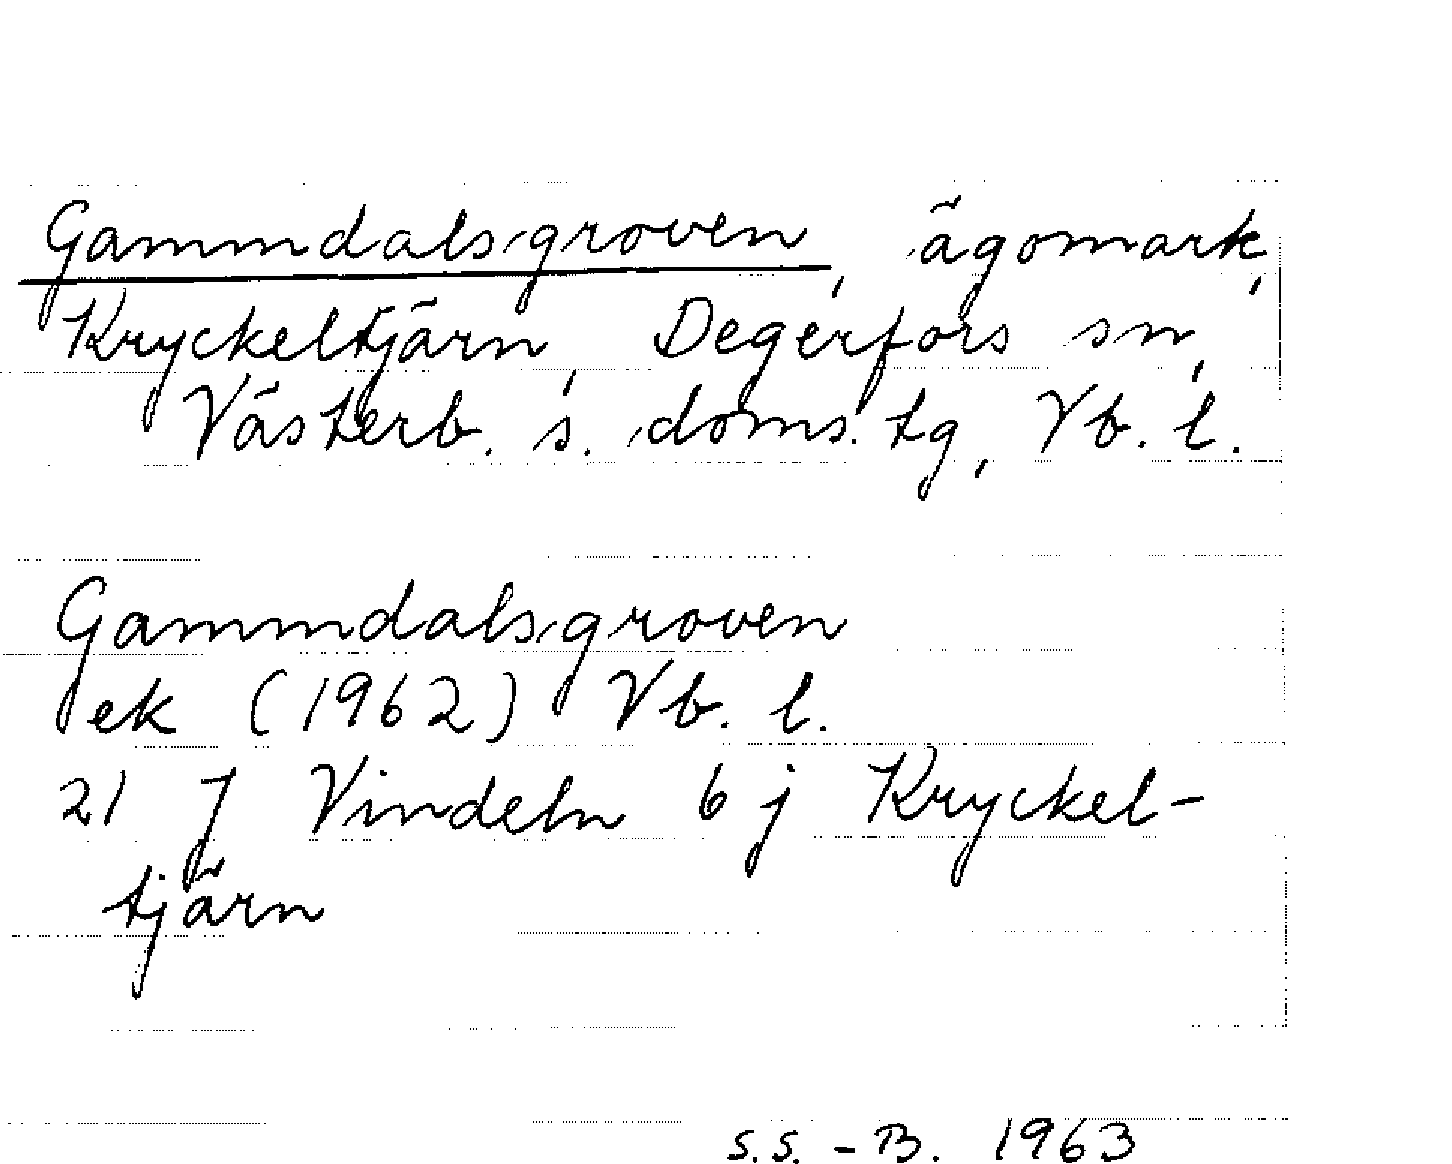 Gammdalsgroven, ägomark,
Kryckeltjärn, Degerfors sn,
Västerb. s. doms. tg, Vb. l.
Gammdalsgroven
ek (1962) Vb. l.
21 J Vindeln 6 j Kryckel-
tjärn
S.S. - B. 1963